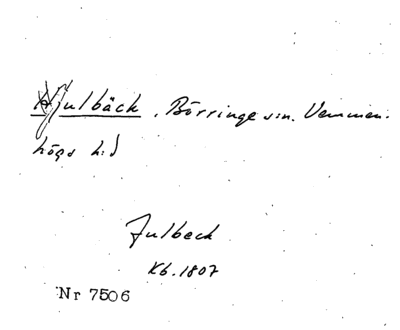 Julbäck. Börringe s:n. Vemmen-
högs h:d
Julbeck
Kb. 1807
Nr 7506